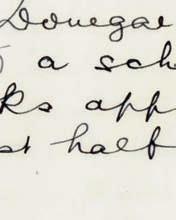 Donegal
a sch
ks app
st half